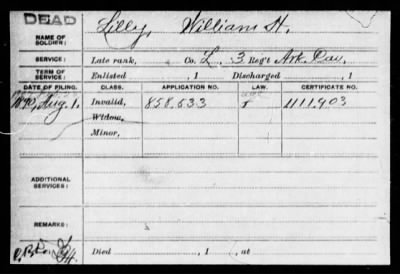 DEAD
NAME OF SOLDIER: Lilly, William H.
SERVICE: Late rank, Co. L, 3 Reg't Ark. Cav.
TERM OF SERVICE: Enlisted , 1 Discharged , 1
DATE OF FILING. CLASS. APPLICATION NO. LAW. CERTIFICATE NO.
1890, Aug. 1. Invalid, 858,533 1111,903
Widow,
Minor,
ADDITIONAL SERVICES:
REMARKS:
Died , 1 , at